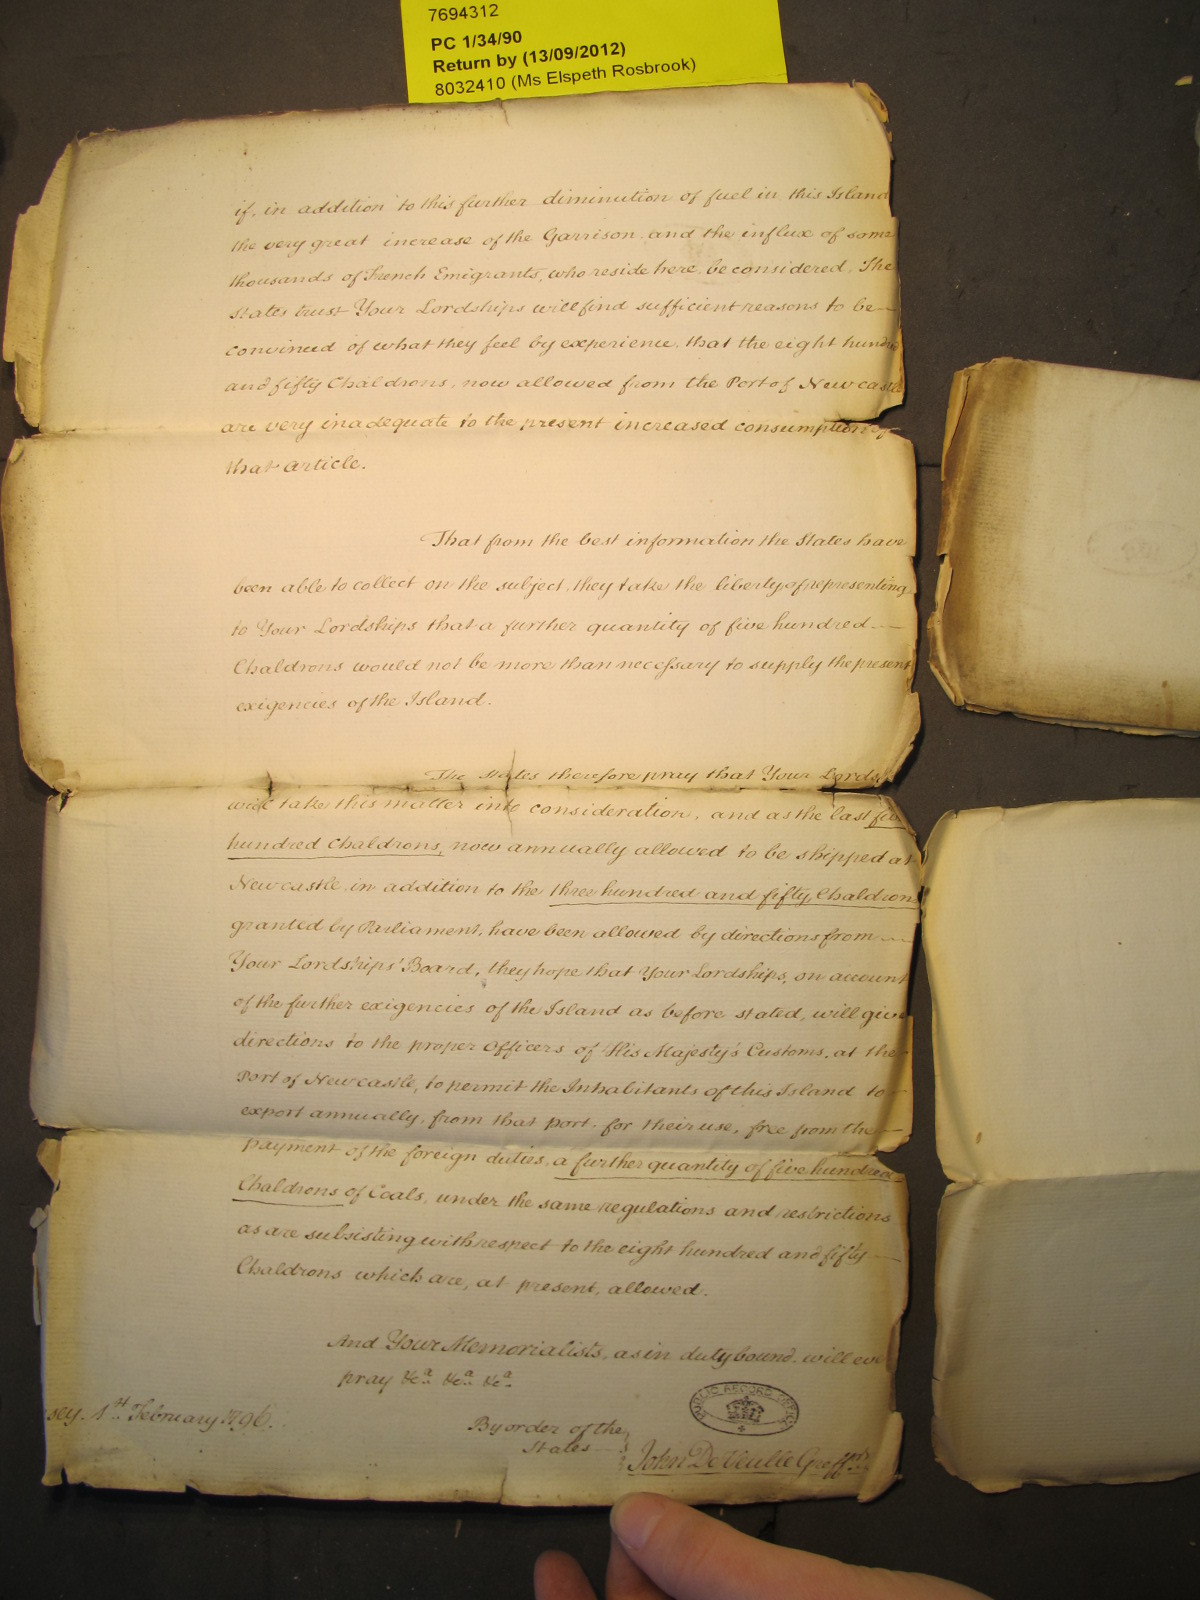 7694312
PC 1/34/90
Return by (13/09/2012)
8032410 (Ms Elspeth Rosbrook)
if, in addition to this further diminution of fuel in this Island
the very great increase of the Garrison and the influx of some
thousands of French Emigrants, who reside here, be considered, The
States trust Your Lordships will find sufficient reasons to be
convinced of what they feel by experience, that the eight hundred
and fifty Chaldrons, now allowed from the Port of Newcastle
are very inadequate to the present increased consumption of
that article.
That from the best information the States have
been able to collect on the subject, they take the liberty of representing
to Your Lordships that a further quantity of five hundred
Chaldrons would not be more than necessary to supply the present
exigencies of the Island.
The States therefore pray that Your Lords
will take this matter into consideration, and as the last five
hundred Chaldrons, now annually allowed to be shipped at
Newcastle, in addition to the three hundred and fifty Chaldrons
granted by Parliament, have been allowed by directions from
Your Lordships' Board, they hope that Your Lordships, on account
of the further exigencies of the Island as before stated, will give
directions to the proper Officers of His Majesty's Customs, at the
Port of Newcastle, to permit the Inhabitants of this Island to
export annually, from that port, for their use, free from the
payment of the foreign duties, a further quantity of five hundred
Chaldrons of Coals, under the same regulations and restrictions
as are subsisting with respect to the eight hundred and fifty
Chaldrons which are, at present, allowed.
And Your Memorialists, as in duty bound, will ever
pray &c.a &c.a &c.a
sey. 1st February 1796.
By order of the
States
John De Veulle Greff.
PUBLIC RECORD OFFICE